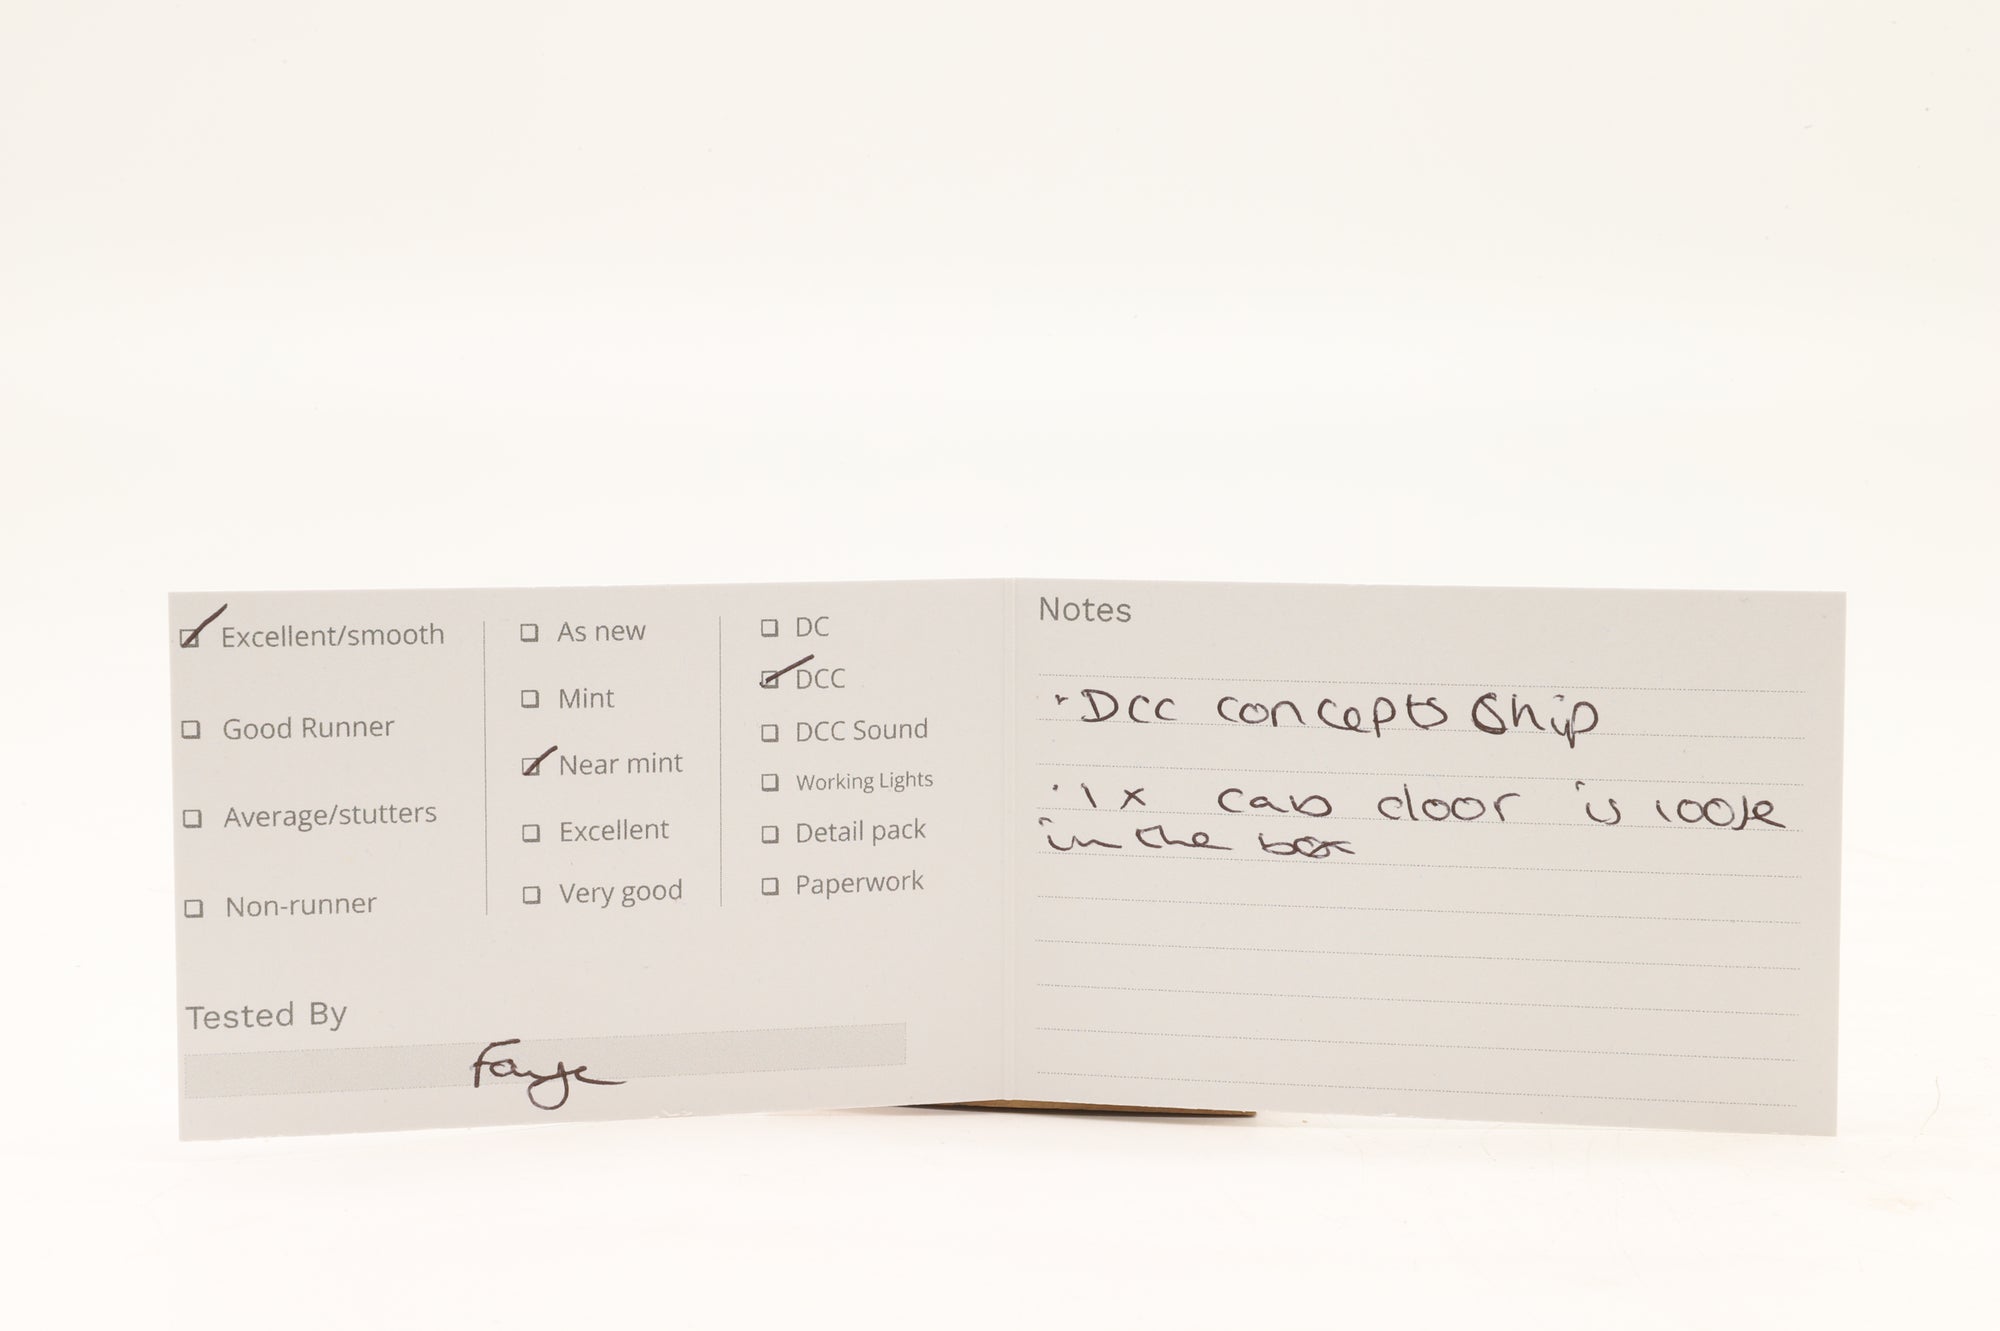 Excellent/smooth
Good Runner
Average/stutters
Non-runner
As new
Mint
Near mint
Excellent
Very good
DC
DCC
DCC Sound
Working Lights
Detail pack
Paperwork
Tested By
Faye
Notes
· DCC concepts Ship
· 1x cab door is loose
in the box